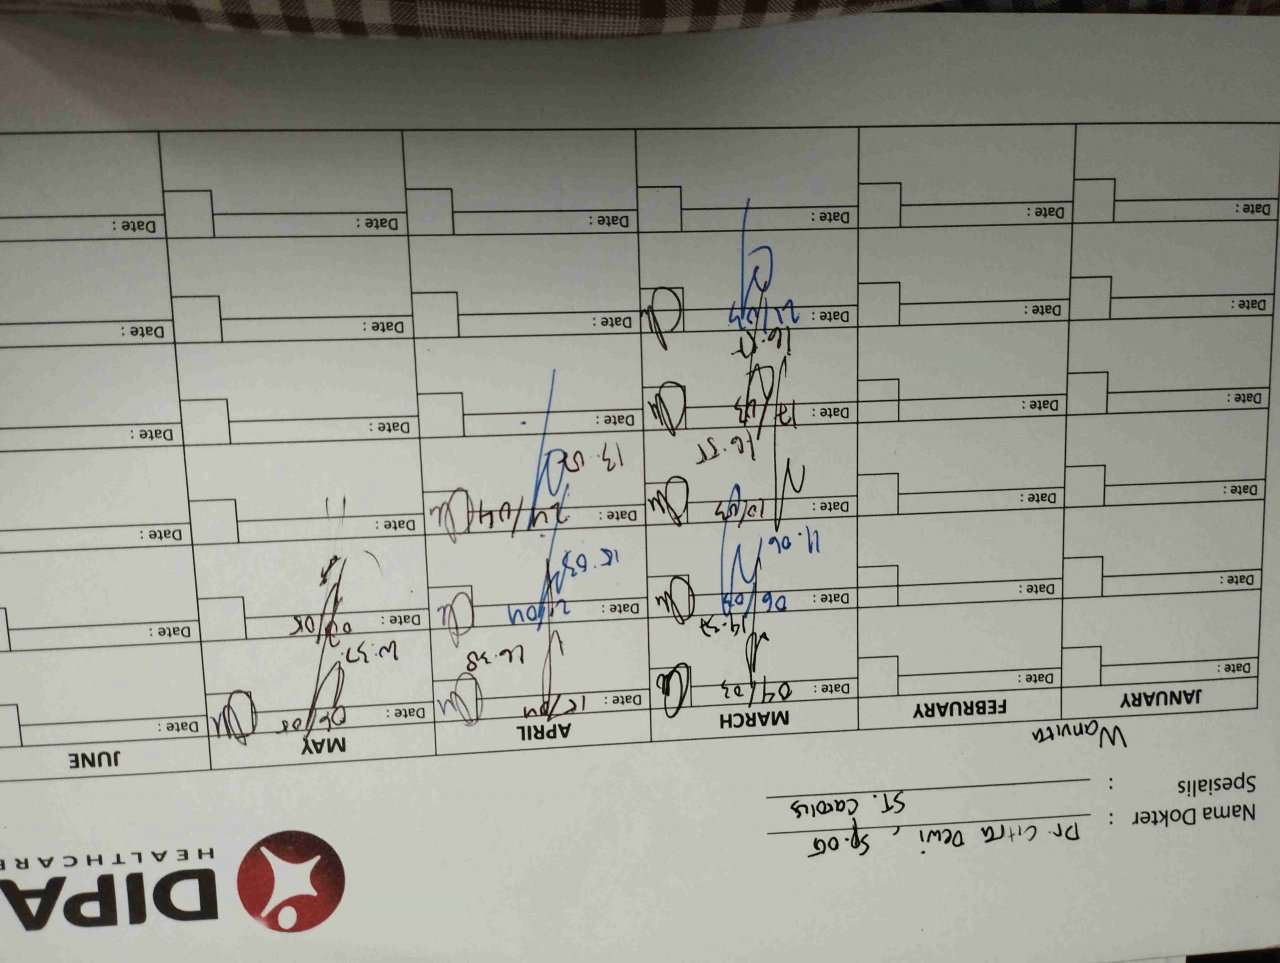 DIPA
HEALTHCARE
Nama Dokter : Dr. Citra Dewi, Sp.OG
Spesialis : ST. Carolus
Wanvita
JANUARY FEBRUARY MARCH APRIL MAY JUNE
Date : Date : Date : 04/03 Date : 15/04 Date : 06/05 Date :
14.37 16.38
Date : Date : Date : 06/03 Date : 21/04 Date : 07/05 Date :
11.06 15.03
Date : Date : Date : 10/03 Date : 24/04 Date : Date :
16.55 13.15
Date : Date : Date : 17/03 Date : Date : Date :
Date : Date : Date : Date : Date : Date :
Date : Date : Date : Date : Date : Date :